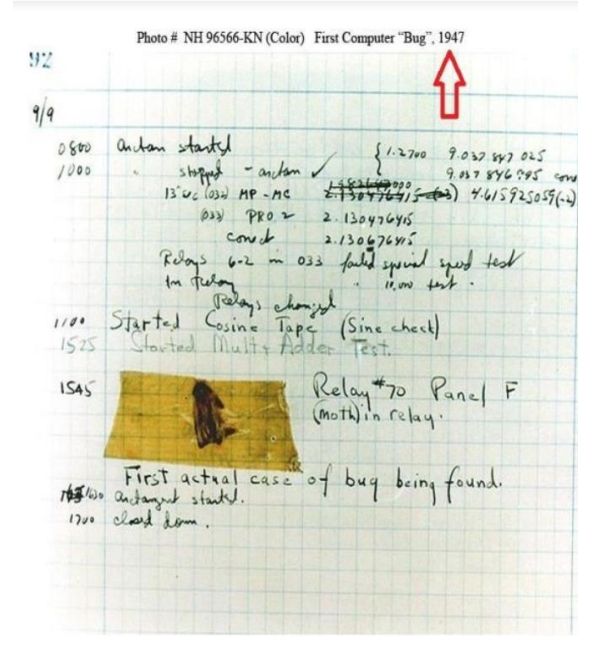 Photo # NH 96566-KN (Color) First Computer “Bug”, 1947
92
9/9
0800 Antan started
1000 " stopped - antan ✓ { 1.2700 9.037 847 025
9.037 846 995 conv
13"uc (032) MP-MC 2.130476415 (-3) 4.615925059(-2)
(033) PRO 2 2.130476415
conv 2.130676415
Relays 6-2 in 033 failed special speed test
In Relay " 10,000 test.
Relays changed
1100 Started Cosine Tape (Sine check)
1525 Started Mult + Adder Test.
1545 Relay #70 Panel F
(Moth) in relay.
First actual case of bug being found.
1630 antangent started.
1700 closed down.